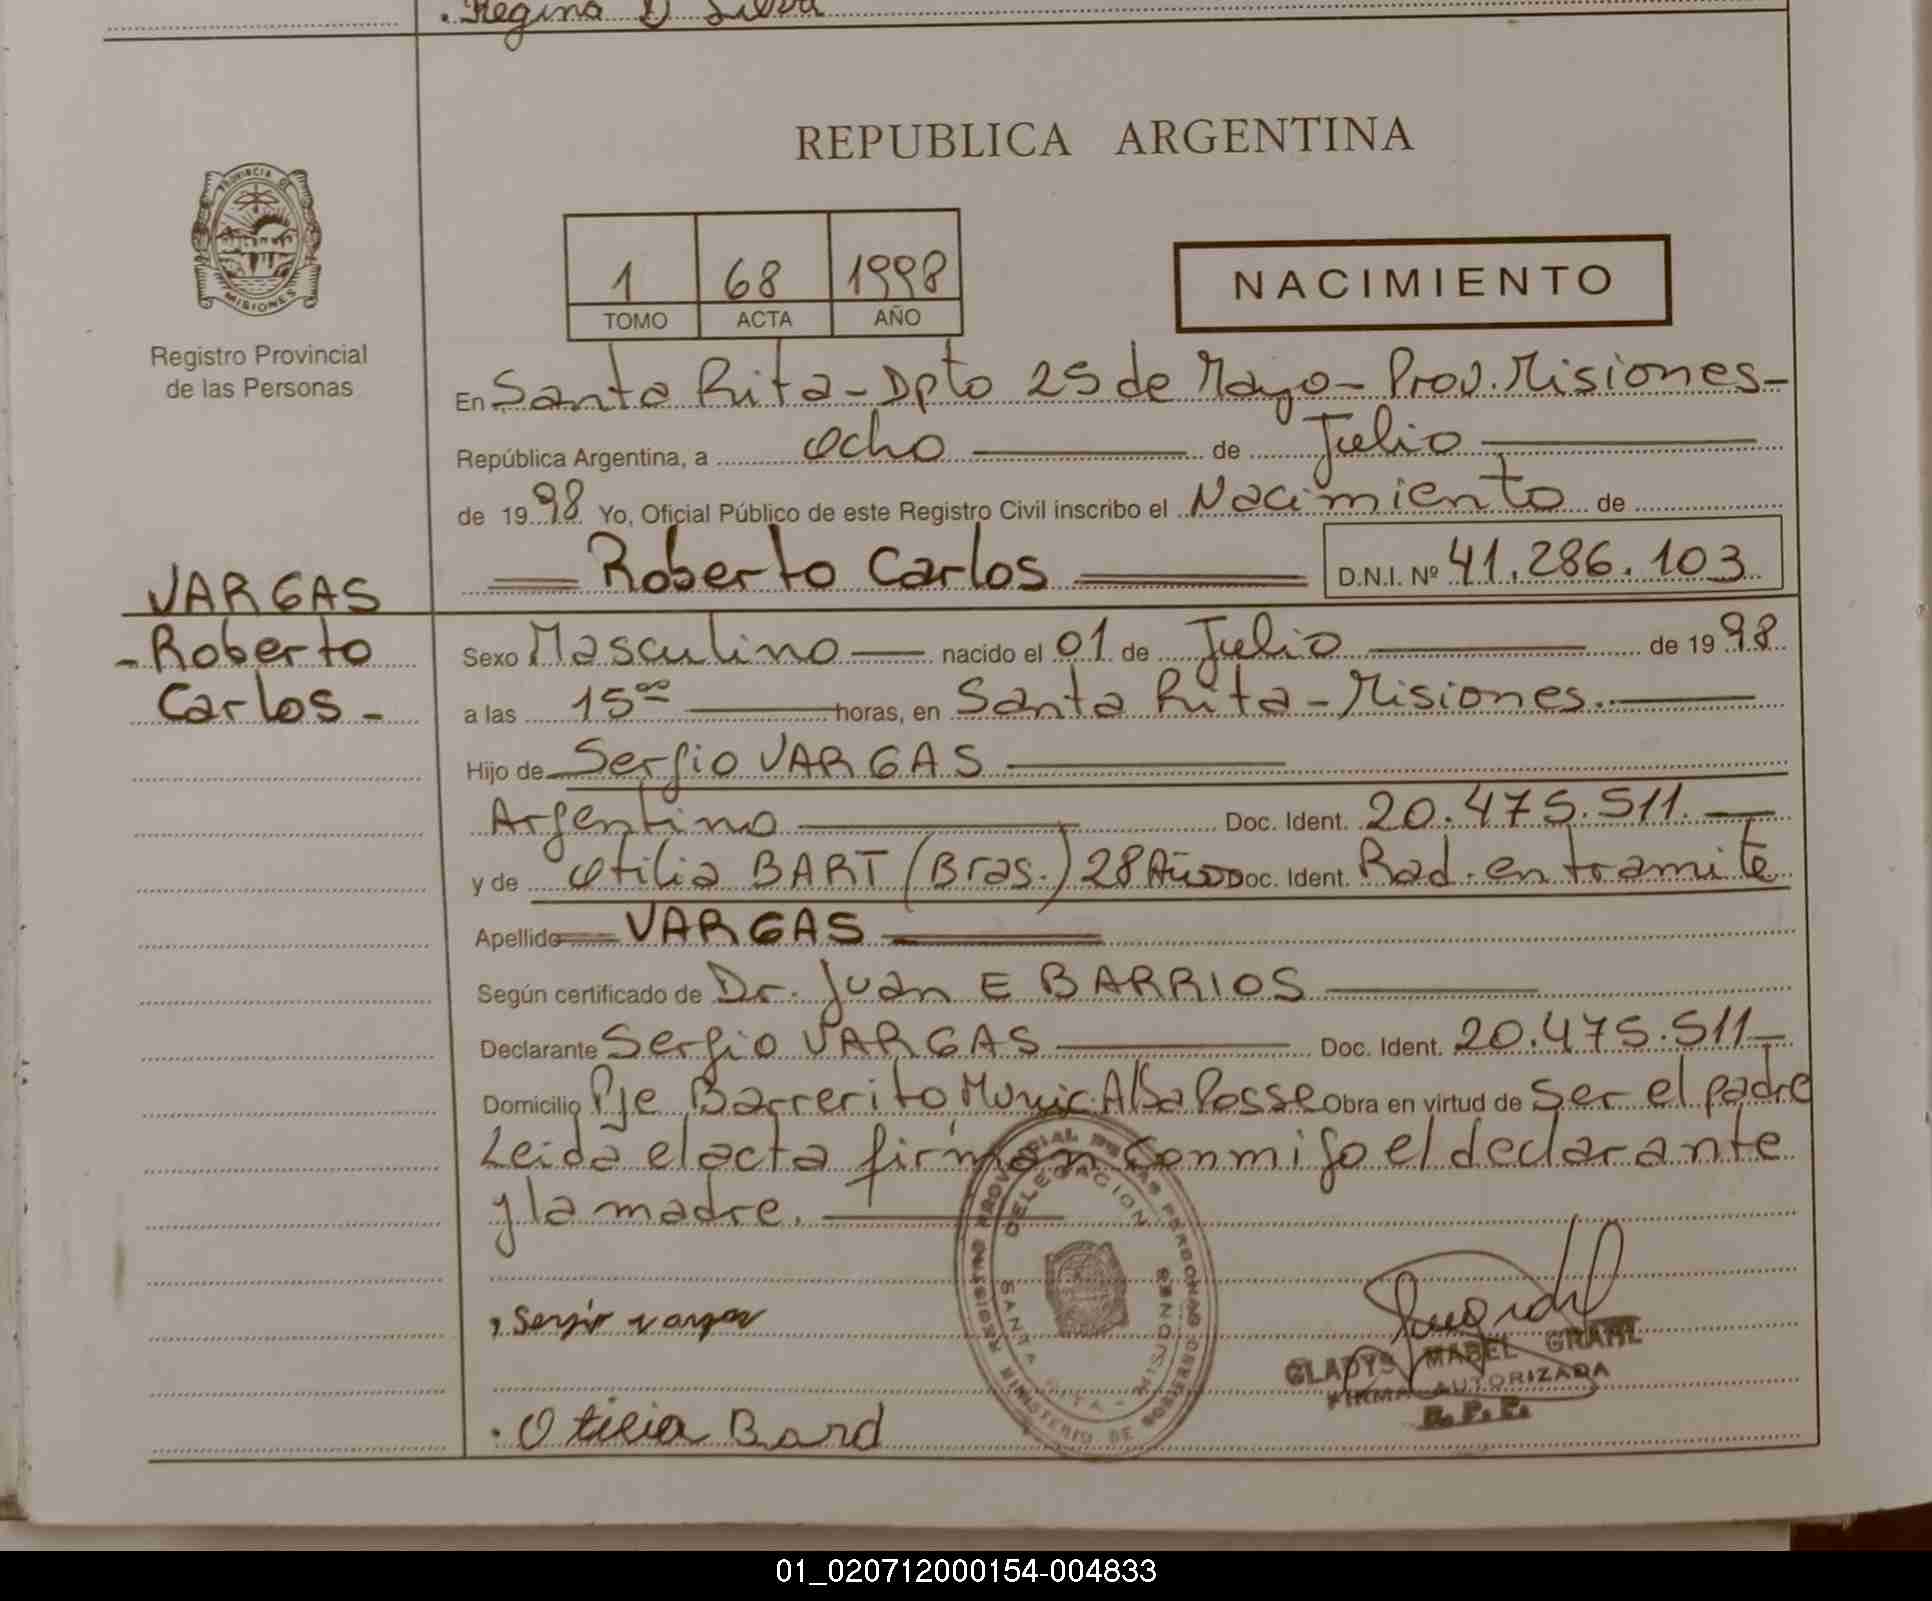 . Regina D Silva
PROVINCIA DE
MISIONES
Registro Provincial
de las Personas
REPUBLICA ARGENTINA
1 68 1998
TOMO ACTA AÑO
NACIMIENTO
En Santa Rita - Dpto 25 de Mayo - Prov. Misiones -
República Argentina, a ocho de Julio
de 19 98 Yo, Oficial Público de este Registro Civil inscribo el Nacimiento de
Roberto Carlos D.N.I. Nº 41.286.103
VARGAS
- Roberto
Carlos -
Sexo Masculino nacido el 01 de Julio de 19 98
a las 15 00 horas, en Santa Rita - Misiones.
Hijo de Sergio VARGAS
Argentino Doc. Ident. 20.475.511.
y de Otilia BART (Bras.) 28 Años Doc. Ident. Rad. en tramite
Apellido VARGAS
Según certificado de Dr. Juan E BARRIOS
Declarante Sergio VARGAS Doc. Ident. 20.475.511
Domicilio Pje Barrerito Munic Alba Posse Obra en virtud de ser el padre
Leida el acta firman conmigo el declarante
y la madre.
REGISTRO PROVINCIAL DE LAS PERSONAS
MINISTERIO DE GOBIERNO
DELEGACION
SANTA RITA - MISIONES
, Sergio vargas
GLADYS MABEL GRAHL
FIRMA AUTORIZADA
R. P. P.
. Otilia Bard
01_020712000154-004833